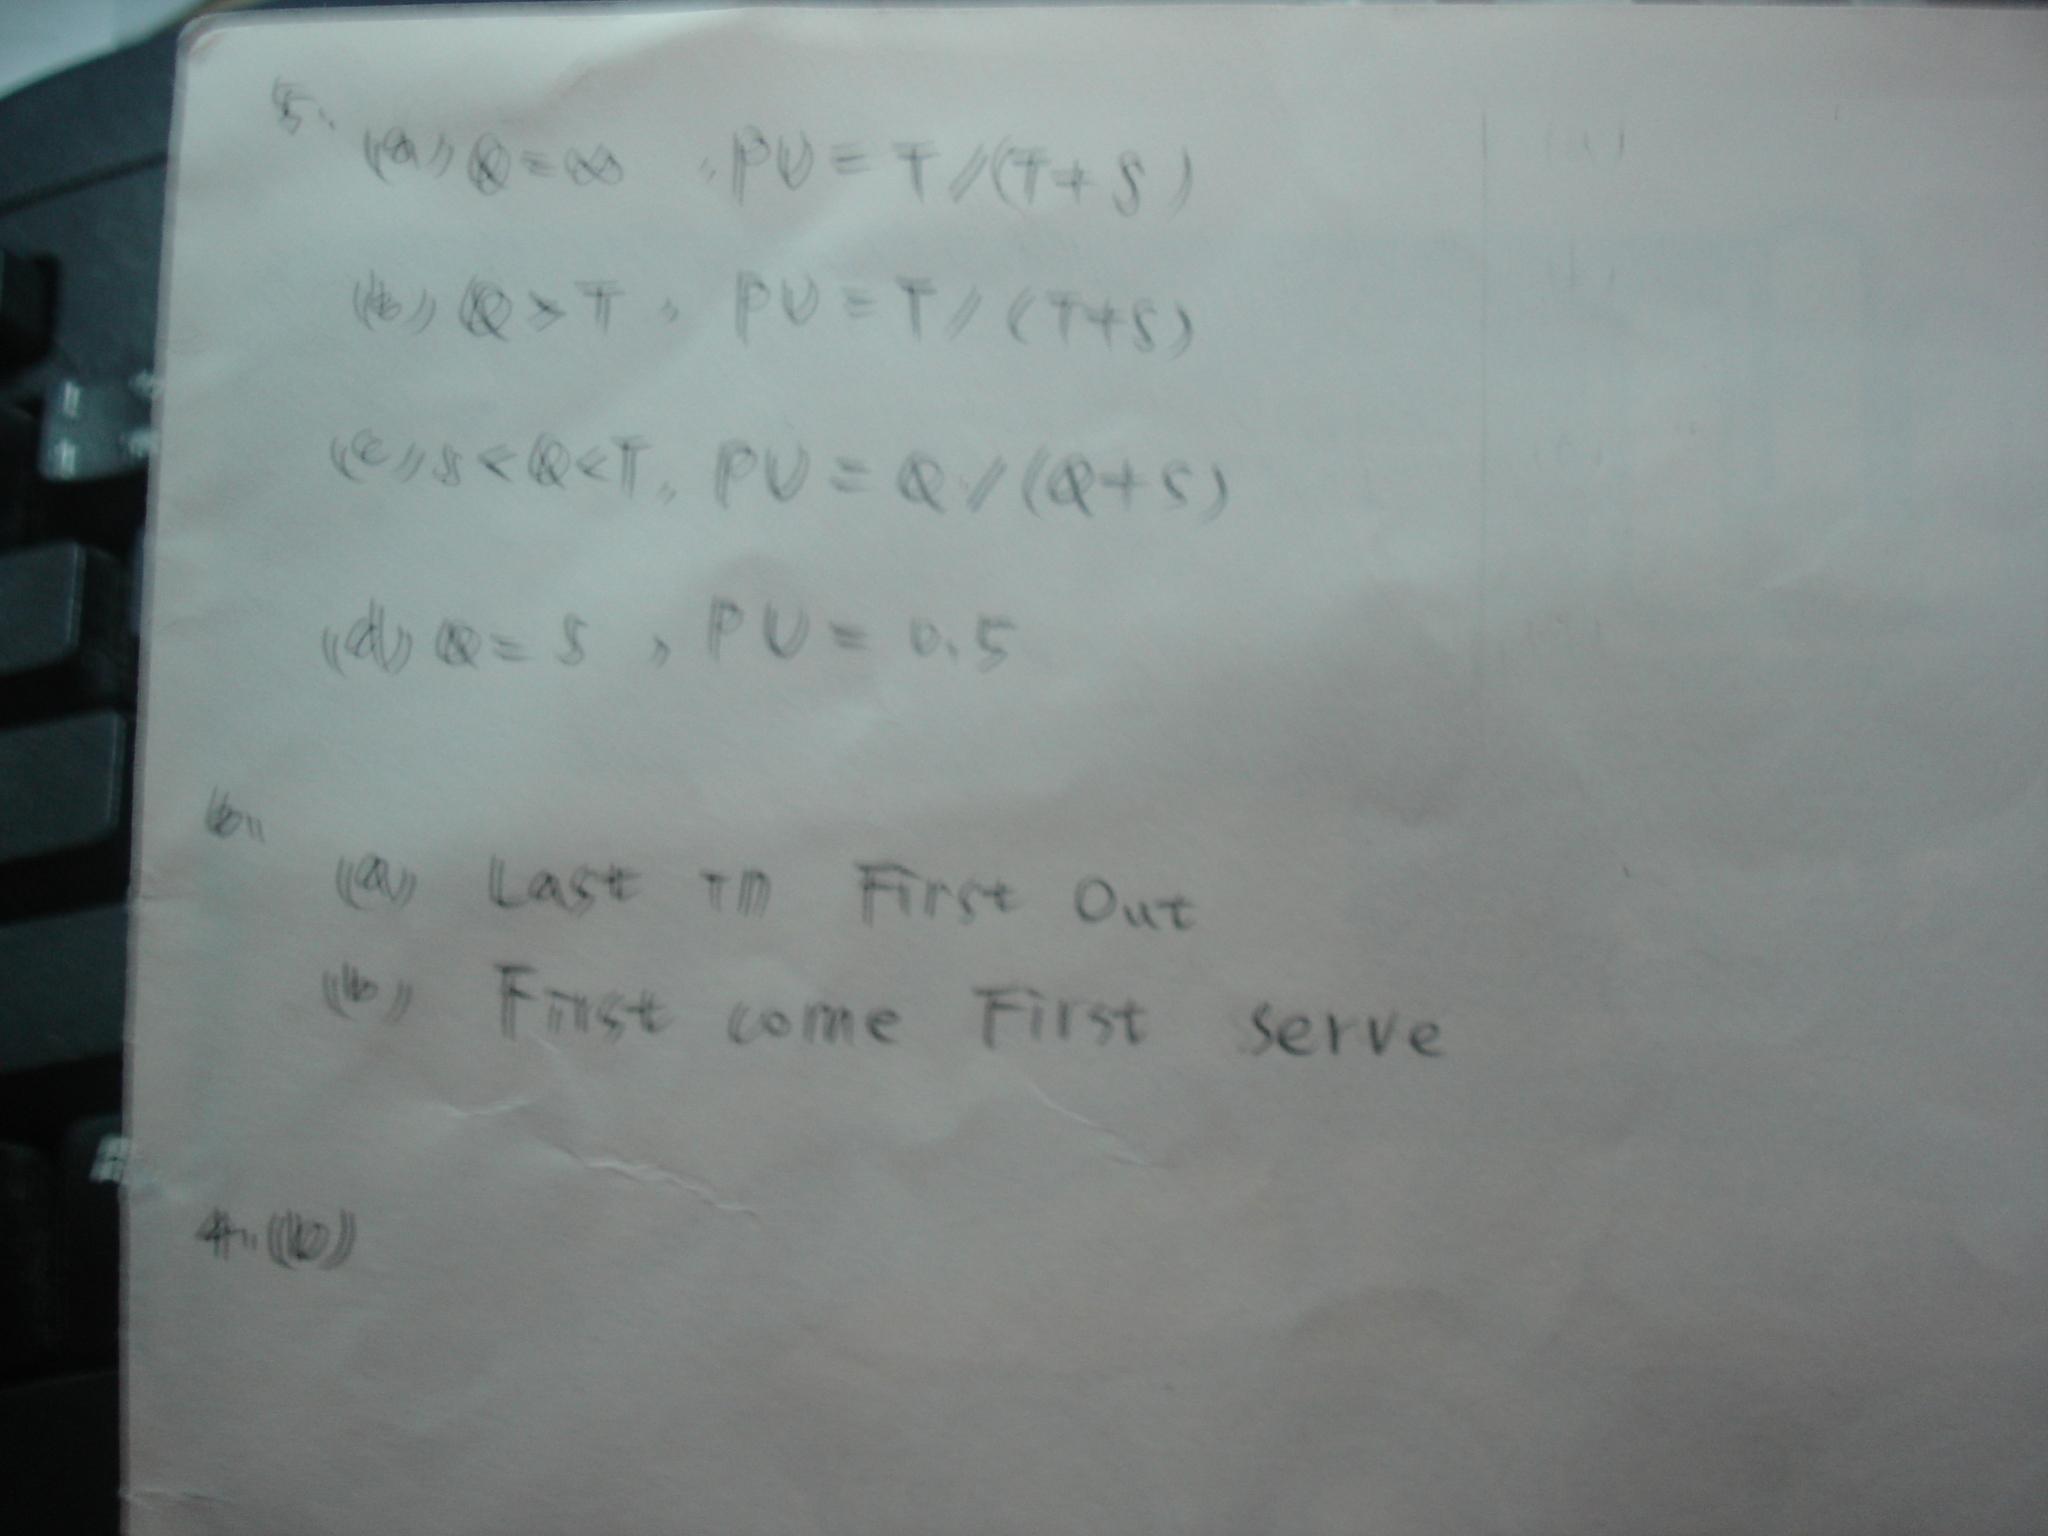 5.
(a) Q = ∞ , PU = T/(T+S)
(b) Q > T , PU = T/(T+S)
(c) S < Q < T, PU = Q/(Q+S)
(d) Q = S , PU = 0.5
6.
(a) Last in First Out
(b) First come First serve
4. (b)